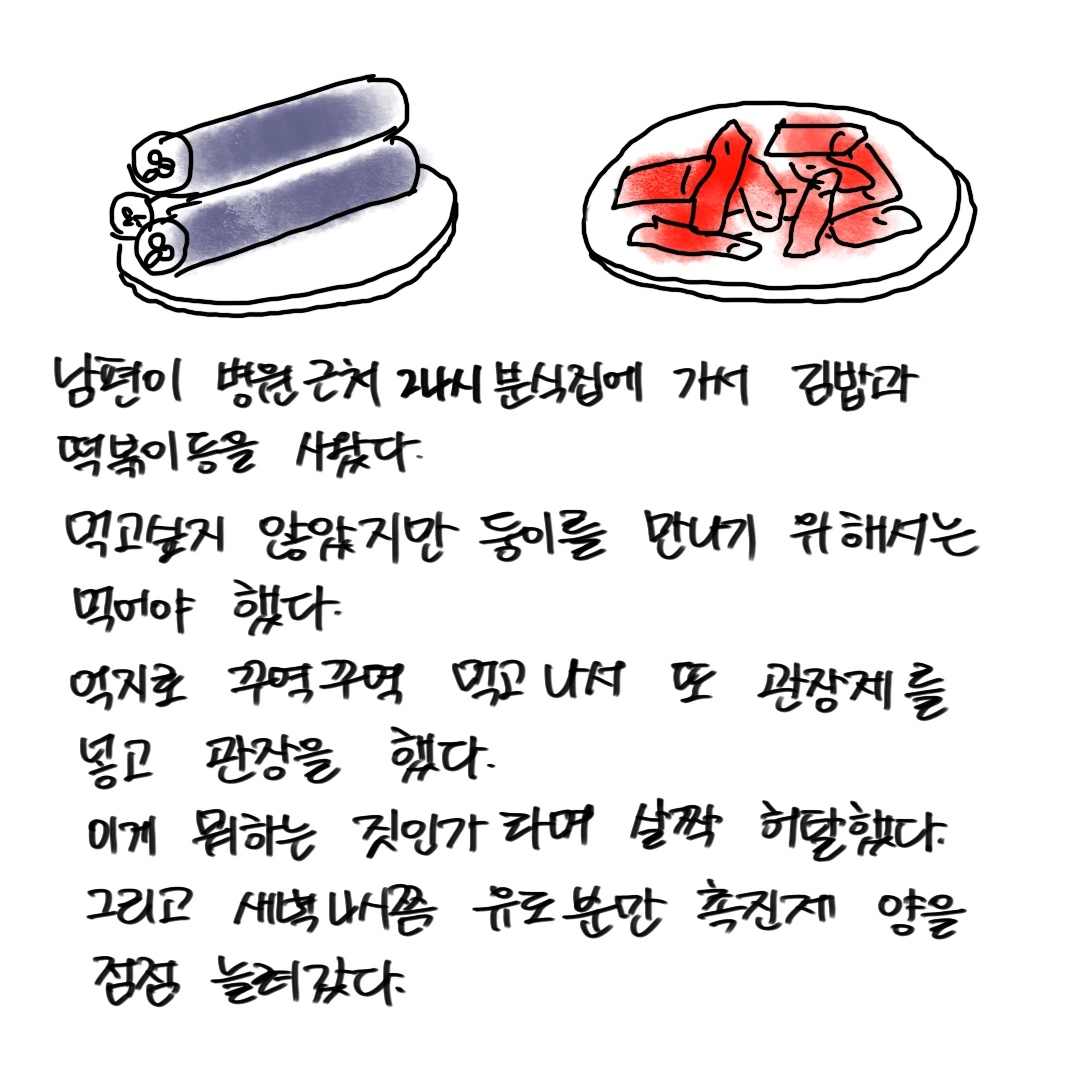 남편이 병원근처 24시 분식집에 가서 김밥과
떡볶이등을 사왔다.
먹고싶지 않았지만 둥이를 만나기 위해서는
먹어야 했다.
억지로 꾸역꾸역 먹고 나서 또 관장제를
넣고 관장을 했다.
이게 뭐하는 짓인가 라며 살짝 허탈했다.
그리고 새벽 4시쯤 유도분만 촉진제 양을
점점 늘려갔다.